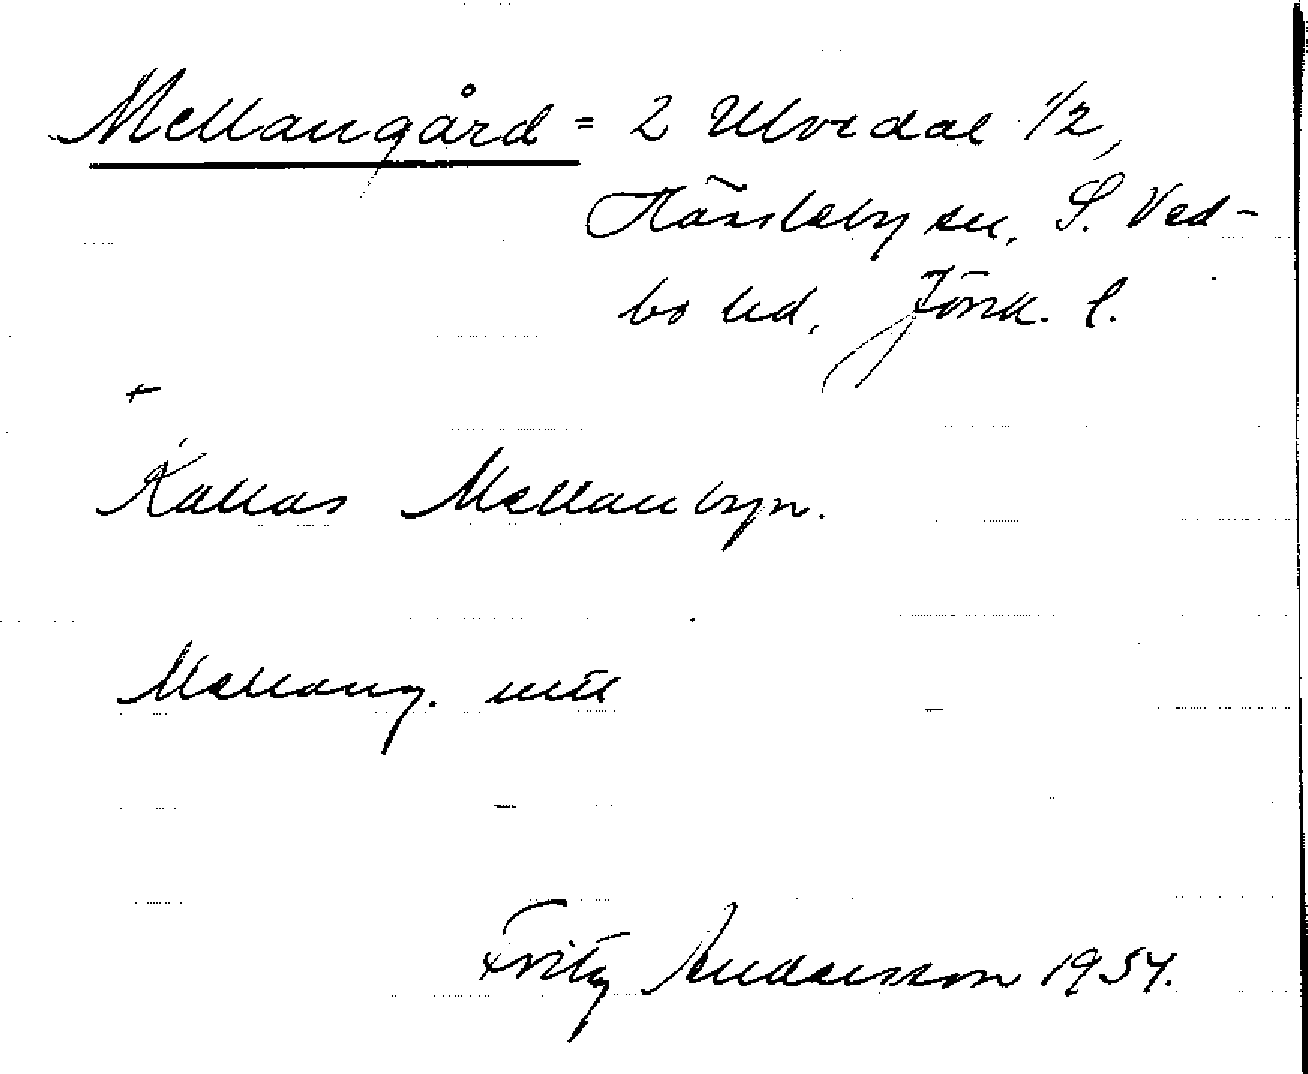 Mellangård = 2 Ulvedal 1/2,
Hässleby sn, S. Ved-
bo hd, Jönk. l.
+
Kallas Mellanbyn.
Mellang.
Fritz Andersson 1954.